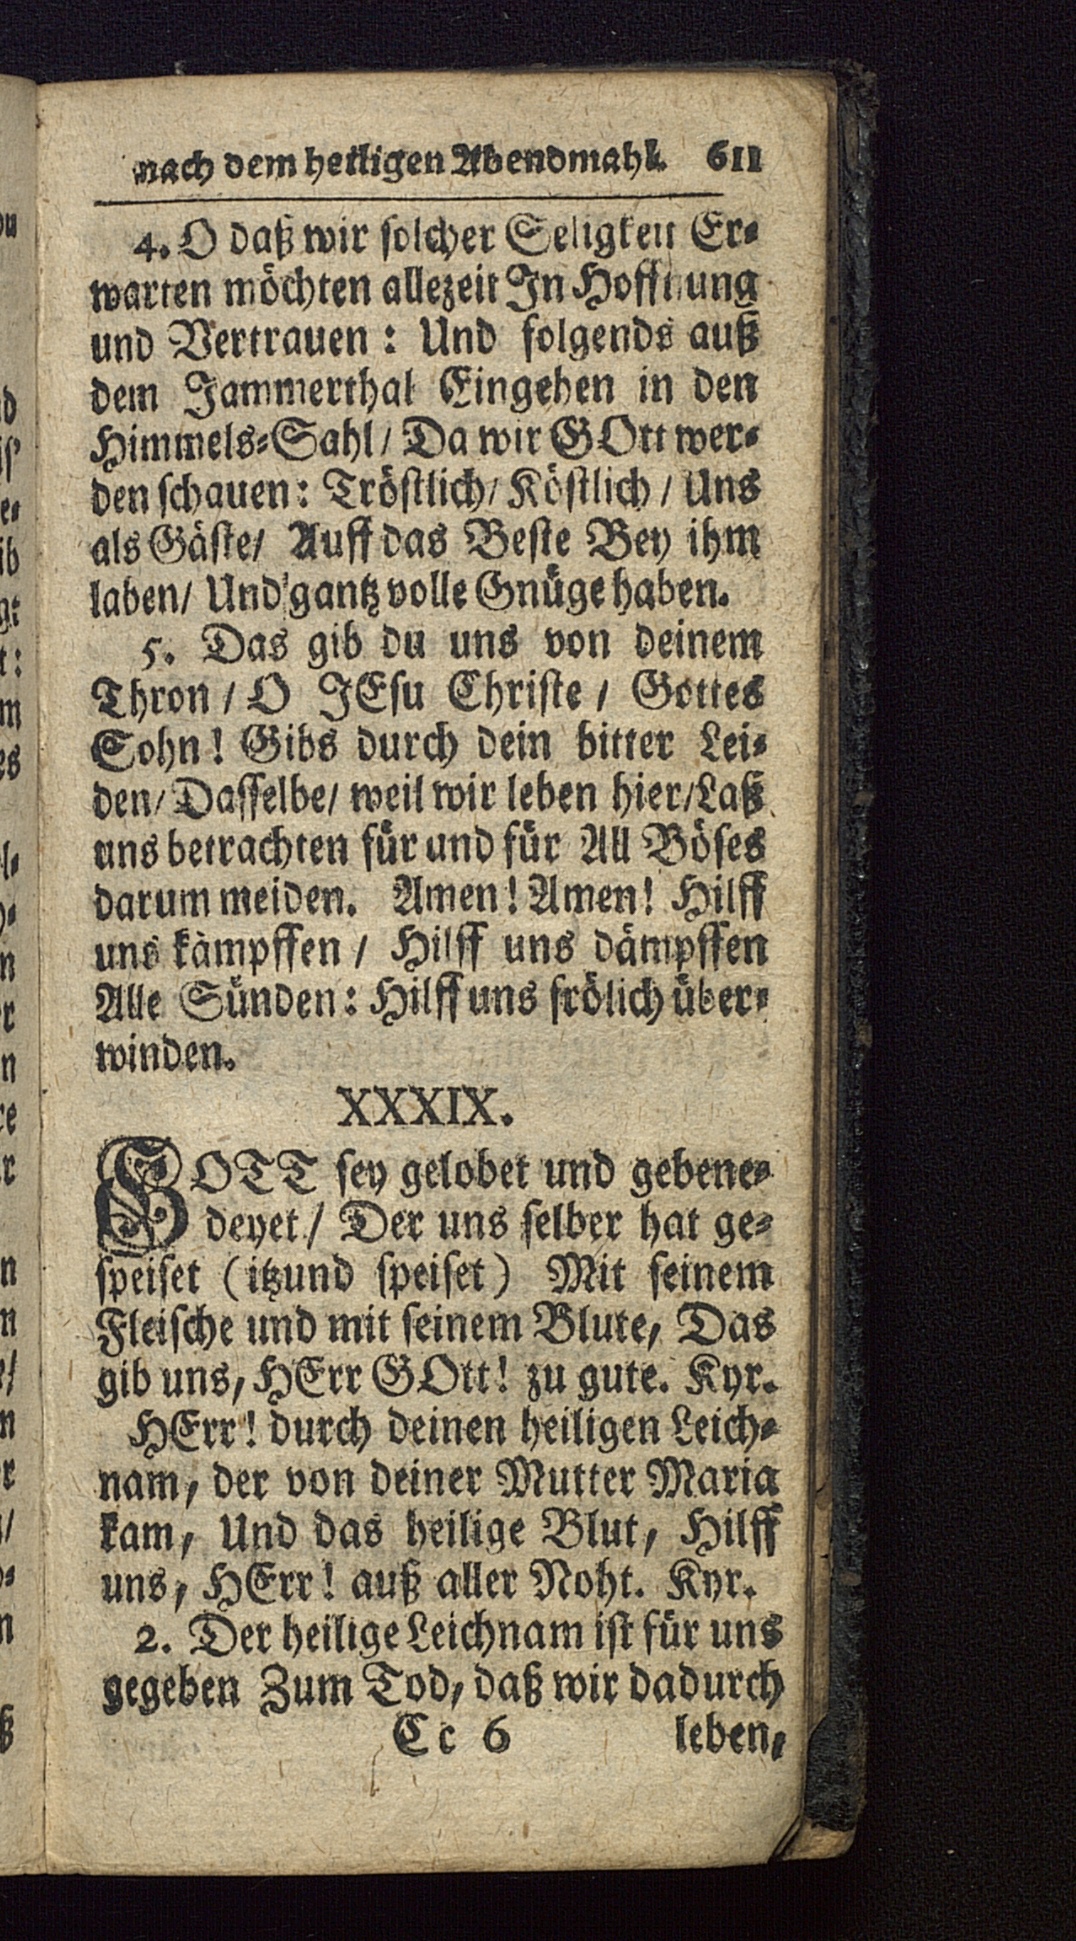 nach dem heiligen Abendmahl. 611
4. O daß wir solcher Seligkeit Er-
warten möchten allezeit In Hoffnung
und Vertrauen: Und folgends auß
dem Jammerthal Eingehen in den
Himmels-Sahl/ Da wir GOtt wer-
den schauen: Tröstlich/ Köstlich/ Uns
als Gäste/ Auff das Beste Bey ihm
laben/ Und gantz volle Gnüge haben.
5. Das gib du uns von deinem
Thron/ O JEsu Christe/ Gottes
Sohn! Gibs durch dein bitter Lei-
den/ Dasselbe/ weil wir leben hier/ Laß
uns betrachten für und für All Böses
darum meiden. Amen! Amen! Hilff
uns kämpffen/ Hilff uns dämpffen
Alle Sünden: Hilff uns frölich über-
winden.
XXXIX.
GOTT sey gelobet und gebene-
deyet/ Der uns selber hat ge-
speiset (itzund speiset) Mit seinem
Fleische und mit seinem Blute, Das
gib uns, HErr GOtt! zu gute. Kyr.
HErr! durch deinen heiligen Leich-
nam, der von deiner Mutter Maria
kam, Und das heilige Blut, Hilff
uns, HErr! auß aller Noht. Kyr.
2. Der heilige Leichnam ist für uns
gegeben Zum Tod, daß wir dadurch
Cc 6 leben,